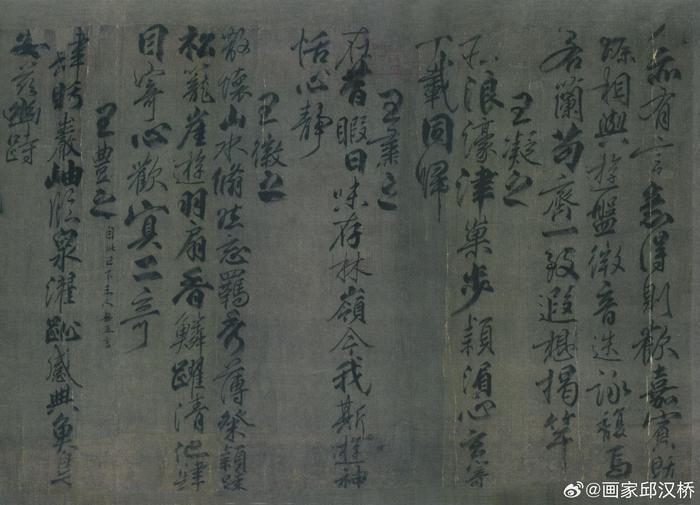 人亦有言意得則歡嘉賓既
臻相與遊盤微音迭詠馥焉
若蘭苟齊一致遐想揭竿
王凝之
莊浪濠津巢步潁湄心玄寄
千載同歸
王肅之
在昔暇日味存林嶺今我斯遊神
恬心靜
王徽之
散懷山水翛然忘羈秀薄粲穎踈
松籠崖遊羽扇香鱗躍清池肆
目寄心歡寘二奇
王豐之 自此已下三人無五言
肆眄巖岫臨泉濯趾感興魚鳥
安茲幽跱
@画家邱汉桥